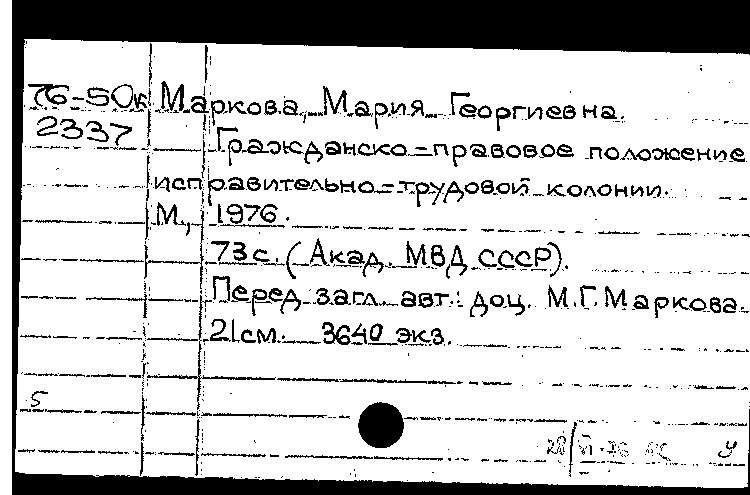 76-50к Маркова, Мария Георгиевна.
2337 Гражданско-правовое положение
исправительно-трудовой колонии.
М., 1976.
73 с. (Акад. МВД СССР).
Перед загл. авт.: доц. М.Г. Маркова.
21 см. 3640 экз.
5
28/VI-76 У